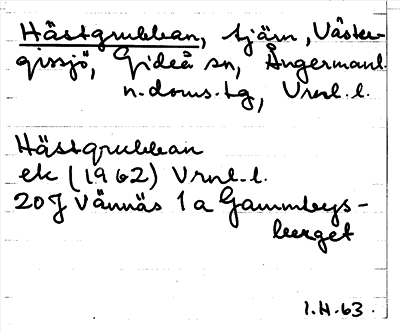 Hästgrubban, tjärn, Väster-
gissjö, Gideå sn, Ångermanl.
n. doms. tg, Vrnl. l.
Hästgrubban
ek (1962) Vrnl. l.
20J Vännäs 1a Gammbygs-
berget
I.H.63.